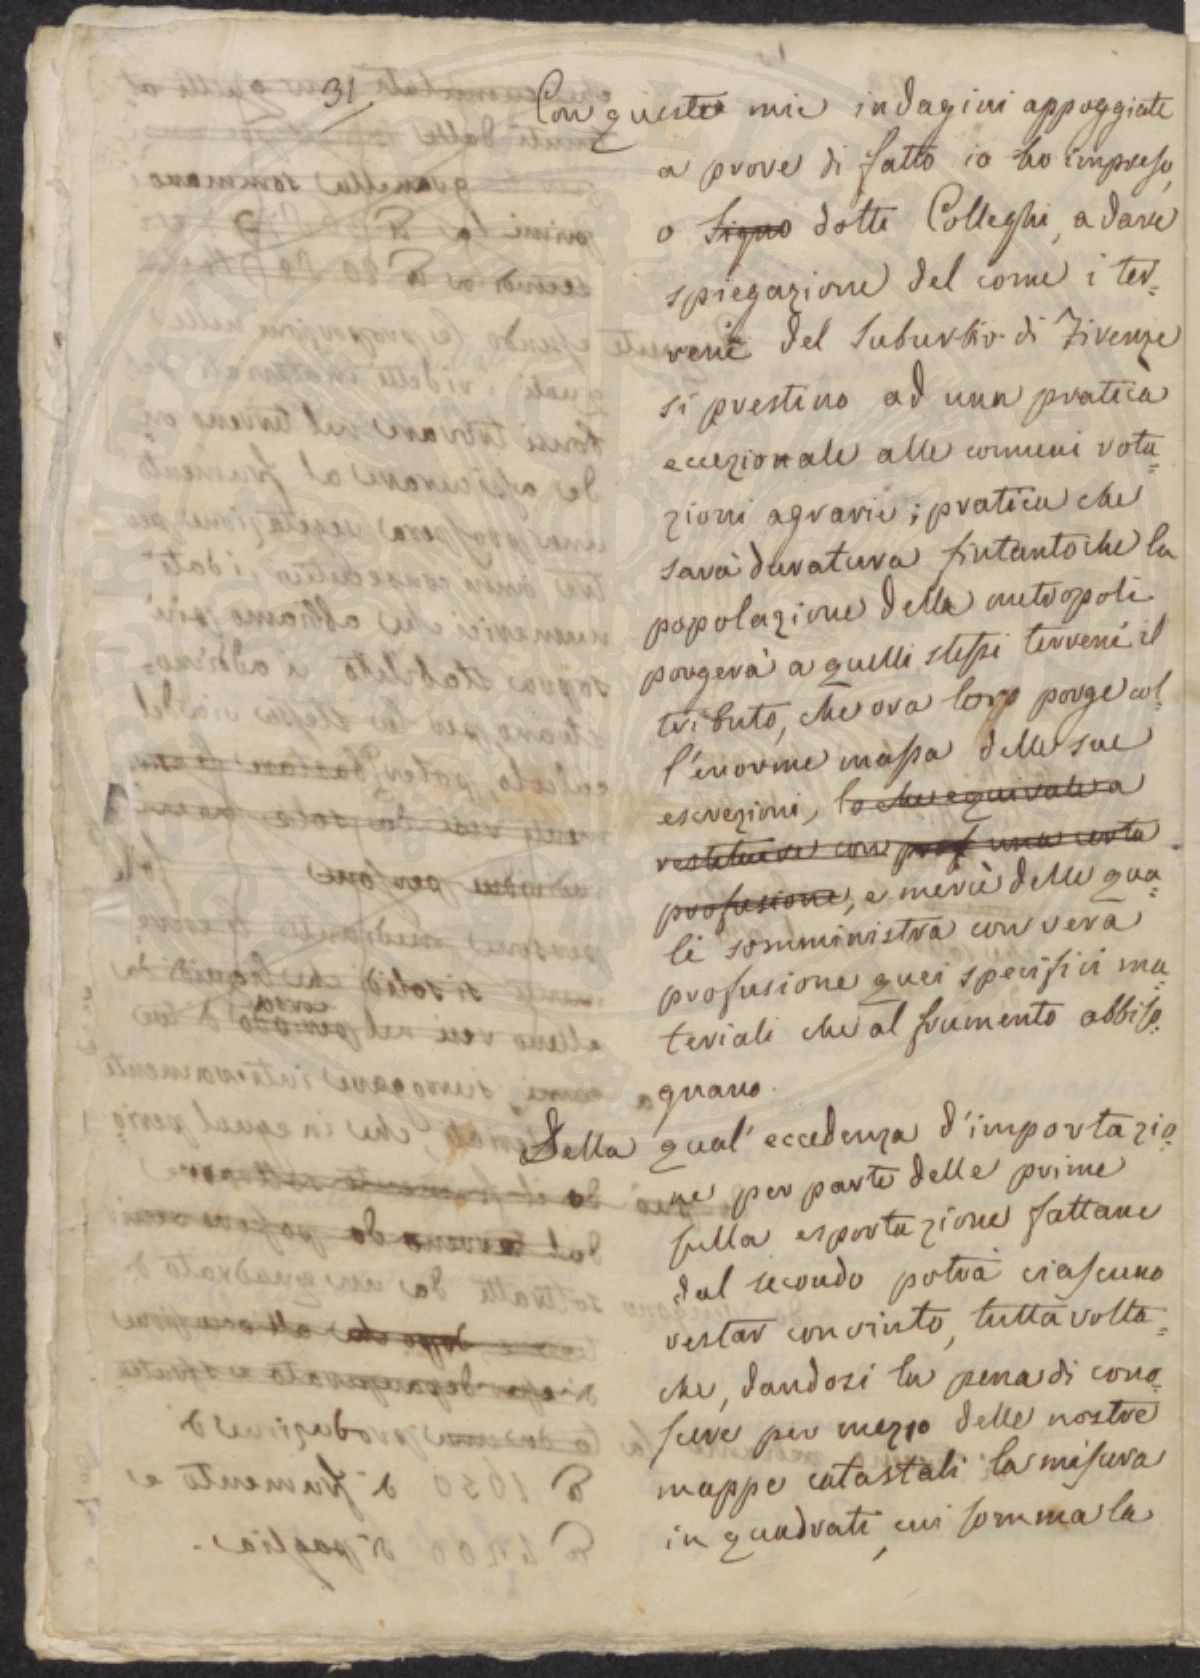 31
Con queste mie indagini appoggiate
a prove di fatto io ho impreso,
o Signo dotti Colleghi, a dare
spiegazione del come i ter=
reni del suburbio di Firenze
si prestino ad una pratica
eccezionale alle comuni rota=
zioni agrarie; pratica che
sarà duratura fintantoche la
popolazione della metropoli
porgerà a quelli stessi terreni il
tributo, che ora loro porge col=
l'enorme massa delle sue
escrezioni, lo che equivale a
restituire con prof una certa
profusione, e mercè delle qua=
li somministra con vera
profusione quei specifici ma=
teriali che al frumento abbiso=
gnano.
Della qual' eccedenza d'importazio=
ne per parte delle prime
sulla esportazione fattane
dal secondo potrà ciascuno
restar convinto, tutta volta=
che, dandosi la pena di cono=
scere per mezzo delle nostre
mappe catastali la misura
in quadrati, cui somma la